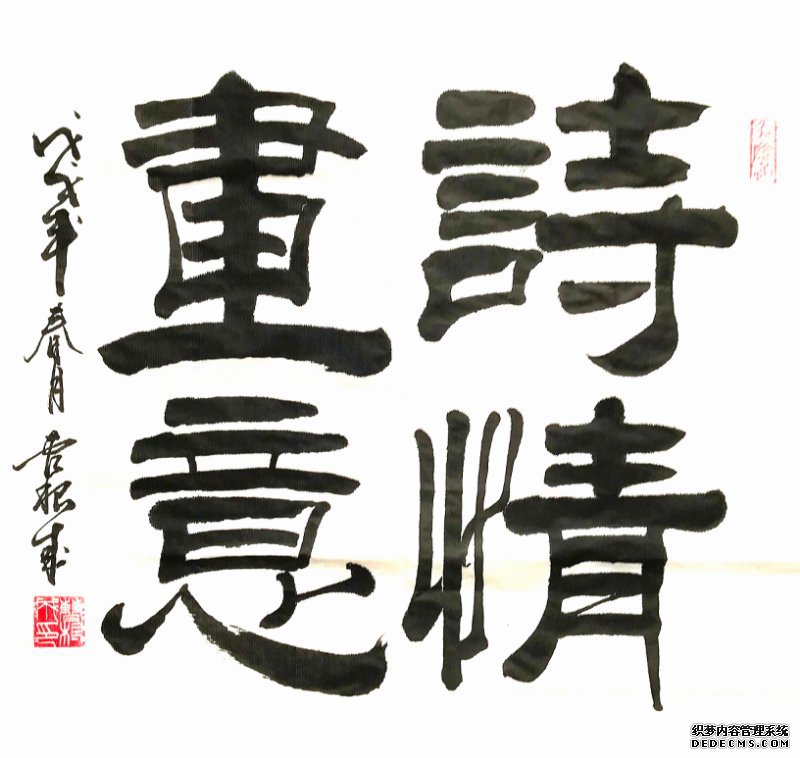 詩情
畫意
戊戌年 春月 根成
织梦内容管理系统
DEDECMS.COM